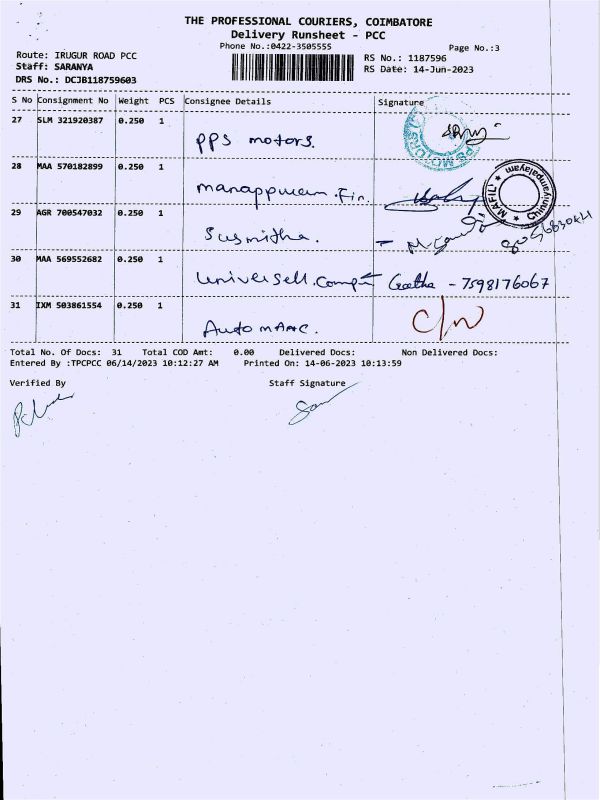 THE PROFESSIONAL COURIERS, COIMBATORE
Delivery Runsheet - PCC
Phone No.:0422-3505555
Page No.:3
Route: IRUGUR ROAD PCC
RS No.: 1187596
Staff: SARANYA
RS Date: 14-Jun-2023
DRS No.: DCJB118759603
S No Consignment No Weight PCS Consignee Details Signature
27 SLM 321920387 0.250 1
PPS motors.
28 MAA 570182899 0.250 1
manappuram. Fin.
29 AGR 700547032 0.250 1
Susmitha.
30 MAA 569552682 0.250 1
Geetha - 7598176067
31 IXM 503861554 0.250 1
C/N
Total No. Of Docs: 31 Total COD Amt: 0.00 Delivered Docs: Non Delivered Docs:
Entered By :TPCPCC 06/14/2023 10:12:27 AM Printed On: 14-06-2023 10:13:59
Verified By Staff Signature